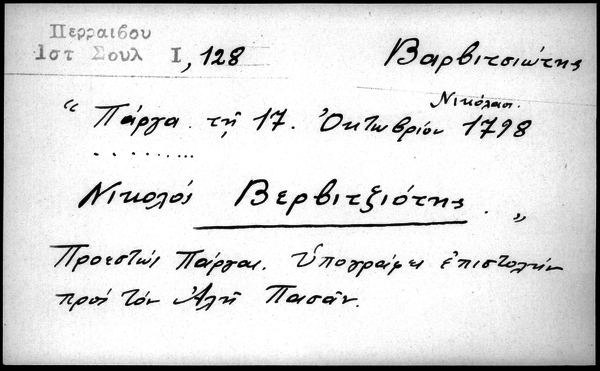 Περραιβου
1στ Σουλ Ι, 128
Βαρβιτσιώτης
Νικόλαος.
“ Πάργα τῇ 17. Ὀκτωβρίου 1798
. . . . . . . .
Νικολός Βερβιτζιότης. „
Προεστώς Πάργας. Ὑπογράφει ἐπιστολήν
πρός τόν Ἀλῆ Πασᾶν.